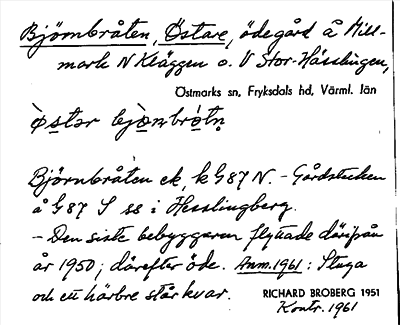 Björnbråten, Östare, ödegård å Mill-
mark N Kläggen o. V Stor-Hässlingen,
Östmarks sn, Fryksdals hd, Värml. län
östər bjo̱n̥bro̱tn̥
Björnbråten ek, k G 87 N. – Gårdstecken
å G 87 S ss i Hesslingberg.
– Den siste bebyggaren flyttade därifrån
år 1950, därefter öde. Anm. 1961: Stuga
och ett härbre står kvar.
RICHARD BROBERG 1951
Kontr. 1961